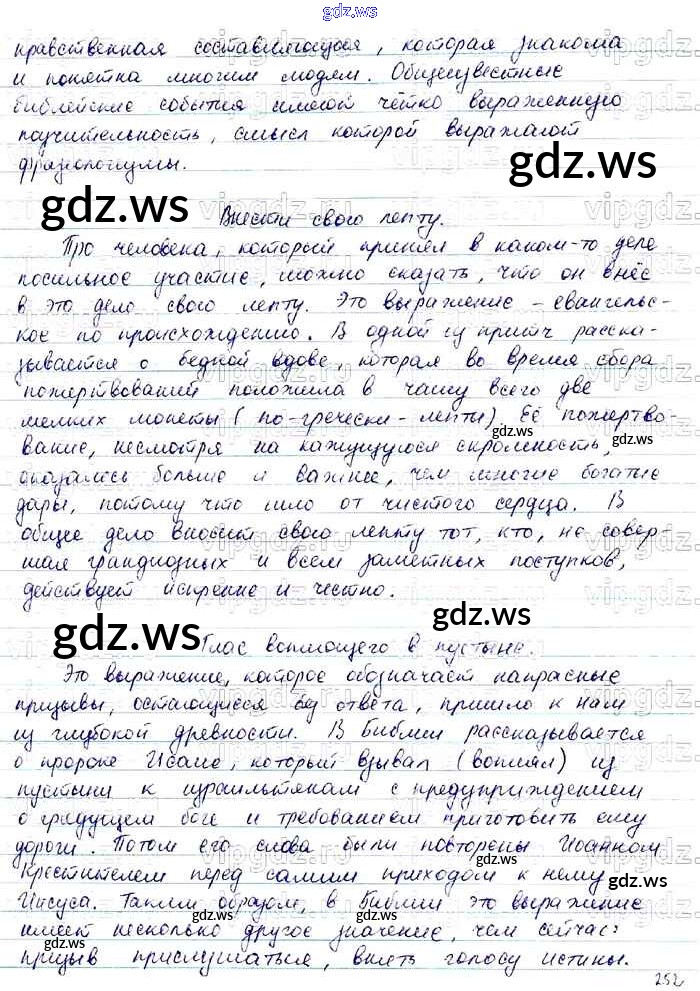 gdz.ws
нравственная составляющая, которая знакома
и понятна многим людям. Общеизвестные
библейские события имеют чётко выраженную
поучительность, смысл которой выражают
фразеологизмы.
gdz.ws
gdz.ws
Внести свою лепту.
Про человека, который принял в каком-то деле
посильное участие, можно сказать, что он внёс
в это дело свою лепту. Это выражение – евангельс-
кое по происхождению. В одной из притч расска-
зывается о бедной вдове, которая во время сбора
пожертвований положила в чашу всего две
мелких монеты (по-гречески – лепты). Её пожертво-
gdz.ws
gdz.ws
вание, несмотря на кажущуюся скромность,
оказалось больше и важнее, чем многие богатые
дары, потому что шло от чистого сердца. В
общее дело вносит свою лепту тот, кто, не совер-
шая грандиозных и всем заметных поступков,
действует искренне и честно.
gdz.ws
gdz.ws
Глас вопиющего в пустыне.
Это выражение, которое обозначает напрасные
призывы, остающиеся без ответа, пришло к нам
из глубокой древности. В Библии рассказывается
о пророке Исаие, который взывал (вопиял) из
пустыни к израильтянам с предупреждением
о грядущем боге и требованием приготовить ему
дороги. Потом его слова были повторены Иоанном
Крестителем перед самим приходом к нему
gdz.ws
gdz.ws
Иисуса. Таким образом, в Библии это выражение
имеет несколько другое значение, чем сейчас:
призыв прислушаться, внять голосу истины.
252